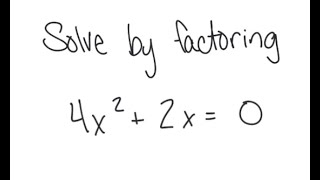 Solve by factoring
4x² + 2x = 0